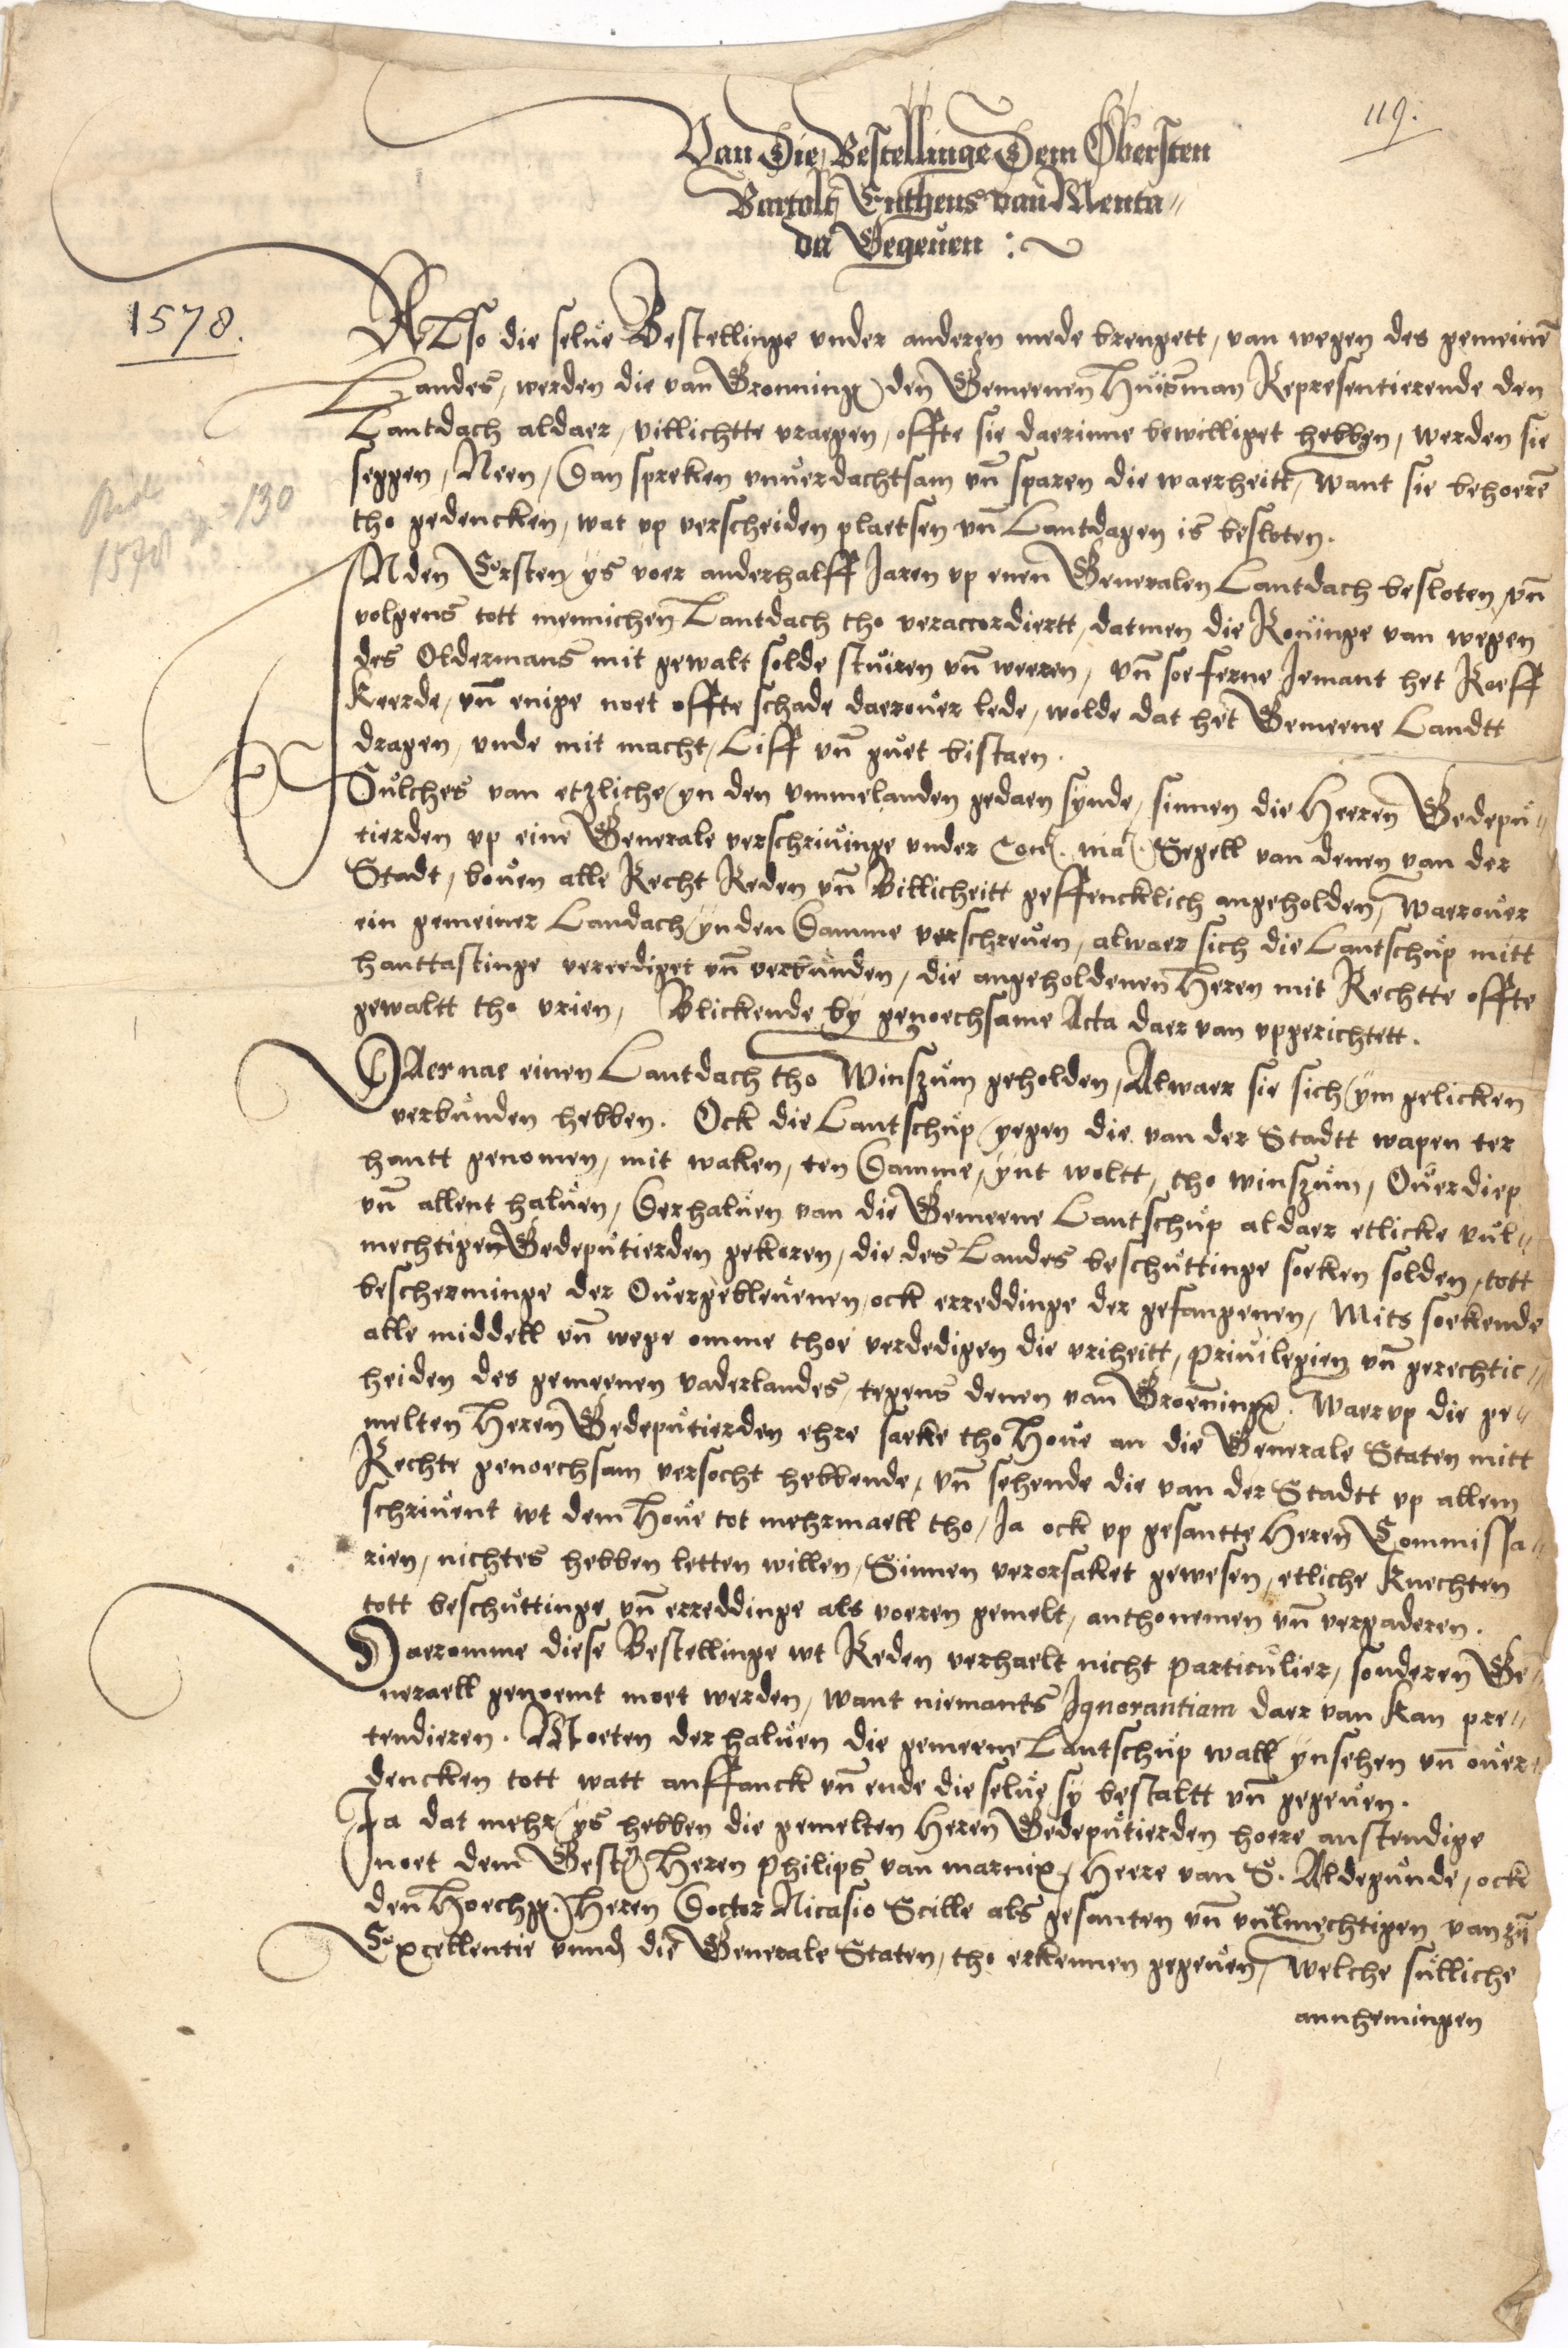 119.
Van Die Bestellinge Dem Obersten
Bartolt Entheus van Menta„
da Gegeuen :~
1578.
ALso die selue Bestellinge vnder anderen mede brengett, van wegen des gemeinē
Landes, werden die van Gronning den Gemeenen Huisman Representierende den
Lantdach aldaer, villichtte vraegen, offte sie daerinne bewilliget hebben, werden sie
seggen, Neen, Dan spreken vnuerdachtsam vn̄ sparen die waerheitt, Want sie behoerē
tho gedencken, wat vp verscheiden plaetsen vn̄ Lantdagen is besloten.
1578 130
INden Ersten ys voer anderhalff Jaren vp enen Generalen Lantdach besloten, vn̄
volgens tott mennichen Lantdach tho veraccordiertt, datmen die Rouinge van wegen
des Oldermans mit gewalt solde stuiren vn̄ weeren, vn̄ soe ferne Iemant het Roeff
Keerde, vn̄ enige noet offte schade daerouer lede, wolde dat het Gemeene Landtt
dragen, vnde mit macht, Liff vn̄ guet bistaen.
Sulches van etzliche yn den vmmelanden gedaen synde, sinnen die Heeren Gedepu„
tierden vp eine Generale verschriuinge vnder Con. ma. Segell van denen van der
Stadt, bouen alle Recht Reden vn̄ Billicheitt geffencklich angeholden, Waerouer
ein gemeiner Landach yn den Damme verschreuen, alwaer sich die Lantschup mitt
hanttastinge vereediget vn̄ verbunden, die angeholdenen Heren mit Rechtte offte
gewaltt tho vrien, Blickende by genoechsame Acta daer van vpgerichtett.
DAernae einen Lantdach tho Winszum geholden, Alwaer sie sich ym gelicken
verbunden hebben. Ock die Lantschup yegen die van der Stadtt wapen ter
hantt genomen, mit waken, ten Damme, ynt woltt, tho winszum, Ouerdiep
vn̄ allent haluen, Derhaluen van die Gemeene Lantschup aldaer etlicke vul„
mechtigen Gedeputierden gekoren, die des Landes beschuttinge soeken solden, tott
bescherminge der Ouergebleuenen, ock erreddinge der gefangenen, Mits soekende
alle middell vn̄ wege omme thoe verdedigen die vriheitt, priuilegien vn̄ gerechtic„
heiden des gemeenen vaderlandes, tegens denen van Groening. Waervp die ge„
melten Heren Gedeputierden ehre saeke tho Houe an die Generale Staten mitt
Rechte genoechsam versocht hebbende, vn̄ sehende die van der Stadtt vp allem
schriuent wt dem Houe tot mehrmaell tho, Ja ock vp gesantte Heren Commissa„
rien, nichtes hebben letten willen, Sinnen verorsaket gewesen, etliche Knechten
tott beschuttinge vn̄ erreddinge als voeren gemelt, anthonemen vn̄ vergaderen.
Daeromme diese Bestellinge wt Reden verhaelt nicht particulier, sonderen Ge„
neraell genoemt moet werden, want niemants Ignorantiam daer van kan pre„
tendieren. Moeten der haluen die gemeene Lantschup wall ynsehen vn̄ ouer„
dencken tott watt anffanck vn̄ ende die selue sy bestaltt vn̄ gegeuen.
Ja dat mehr ys hebben die gemelten Heren Gedeputierden hoere anstendige
noet dem Gestr. Heren Philips van marnix, Heere van S. Aldegunde, ock
den Hoechg. Heren Doctor Nicasio Scille als gesanten vn̄ vulmechtigen van zỹ
Excellentie vnnd die Generale Staten, tho erkennen gegeuen, Welche sulliche
annhemingen